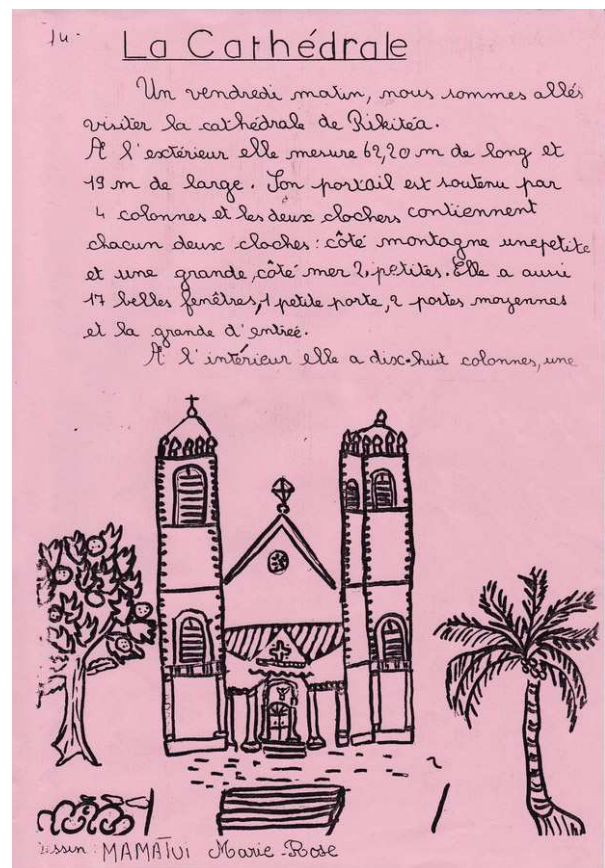 14-
La Cathédrale
Un vendredi matin, nous sommes allés
visiter la cathédrale de Rikitéa.
A l'extérieur elle mesure 62,20 m de long et
19 m de large. Son portail est soutenu par
4 colonnes et les deux clochers contiennent
chacun deux cloches : côté montagne une petite
et une grande, côté mer 2 petites. Elle a aussi
17 belles fenêtres, 1 petite porte, 2 portes moyennes
et la grande d'entrée.
A l'intérieur elle a dix-huit colonnes, une
Dessin : MAMATUI Marie-Rose